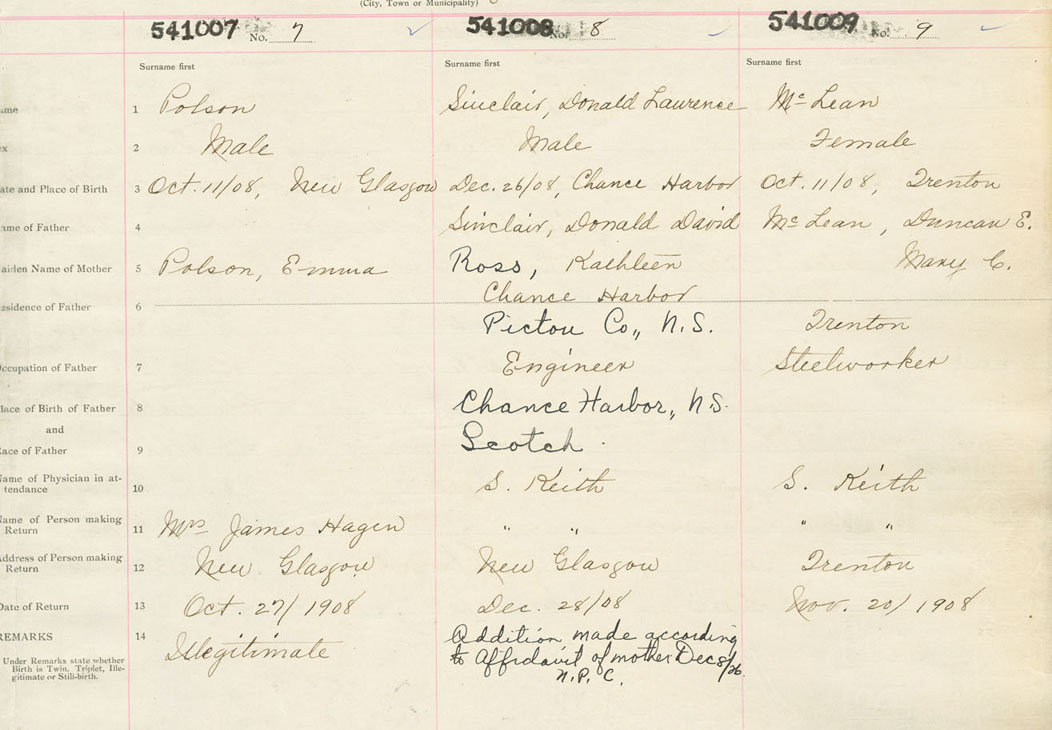 (City, Town or Municipality)
541007 No. 7 541008 No. 8 541009 No. 9
Surname first Surname first Surname first
ame 1 Polson Sinclair, Donald Laurence McLean
ex 2 Male Male Female
ate and Place of Birth 3 Oct. 11/08, New Glasgow Dec. 26/08, Chance Harbor Oct. 11/08, Trenton
ame of Father 4 Sinclair, Donald David McLean, Duncan E.
aiden Name of Mother 5 Polson, Emma Ross, Kathleen Mary C.
Chance Harbor
esidence of Father 6
Pictou Co., N.S. Trenton
ccupation of Father 7 Engineer Steelworker
lace of Birth of Father 8 Chance Harbor, N.S.
and
ace of Father 9 Scotch.
Name of Physician in at-
tendance 10 S. Keith S. Keith
Name of Person making
Return 11 Mrs James Hagen " " " "
Address of Person making
Return 12 New Glasgow New Glasgow Trenton
Date of Return 13 Oct. 27/1908 Dec. 28/08 Nov. 20/1908
REMARKS 14 Illegitimate Addition made according
to Affidavit of mother Dec 8/26.
N.P.C.
Under Remarks state whether
Birth is Twin, Triplet, Ille-
gitimate or Still-birth.